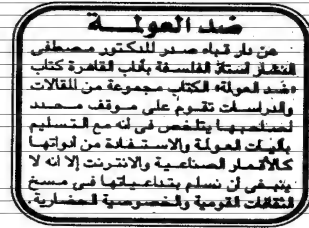 ضد العولمة
عن دار قباء صدر للدكتور مصطفى
النشار أستاذ الفلسفة بآداب القاهرة كتاب
«ضد العولمة» الكتاب مجموعة من المقالات
والدراسات تقوم على موقف محدد
لصاحبها يتلخص فى أنه مع التسليم
بآليات العولمة والاستفادة من أدواتها
كالأقمار الصناعية والانترنت إلا أنه لا
ينبغى أن نسلم بتداعياتها فى مسخ
الثقافات القومية والخصوصية الحضارية.